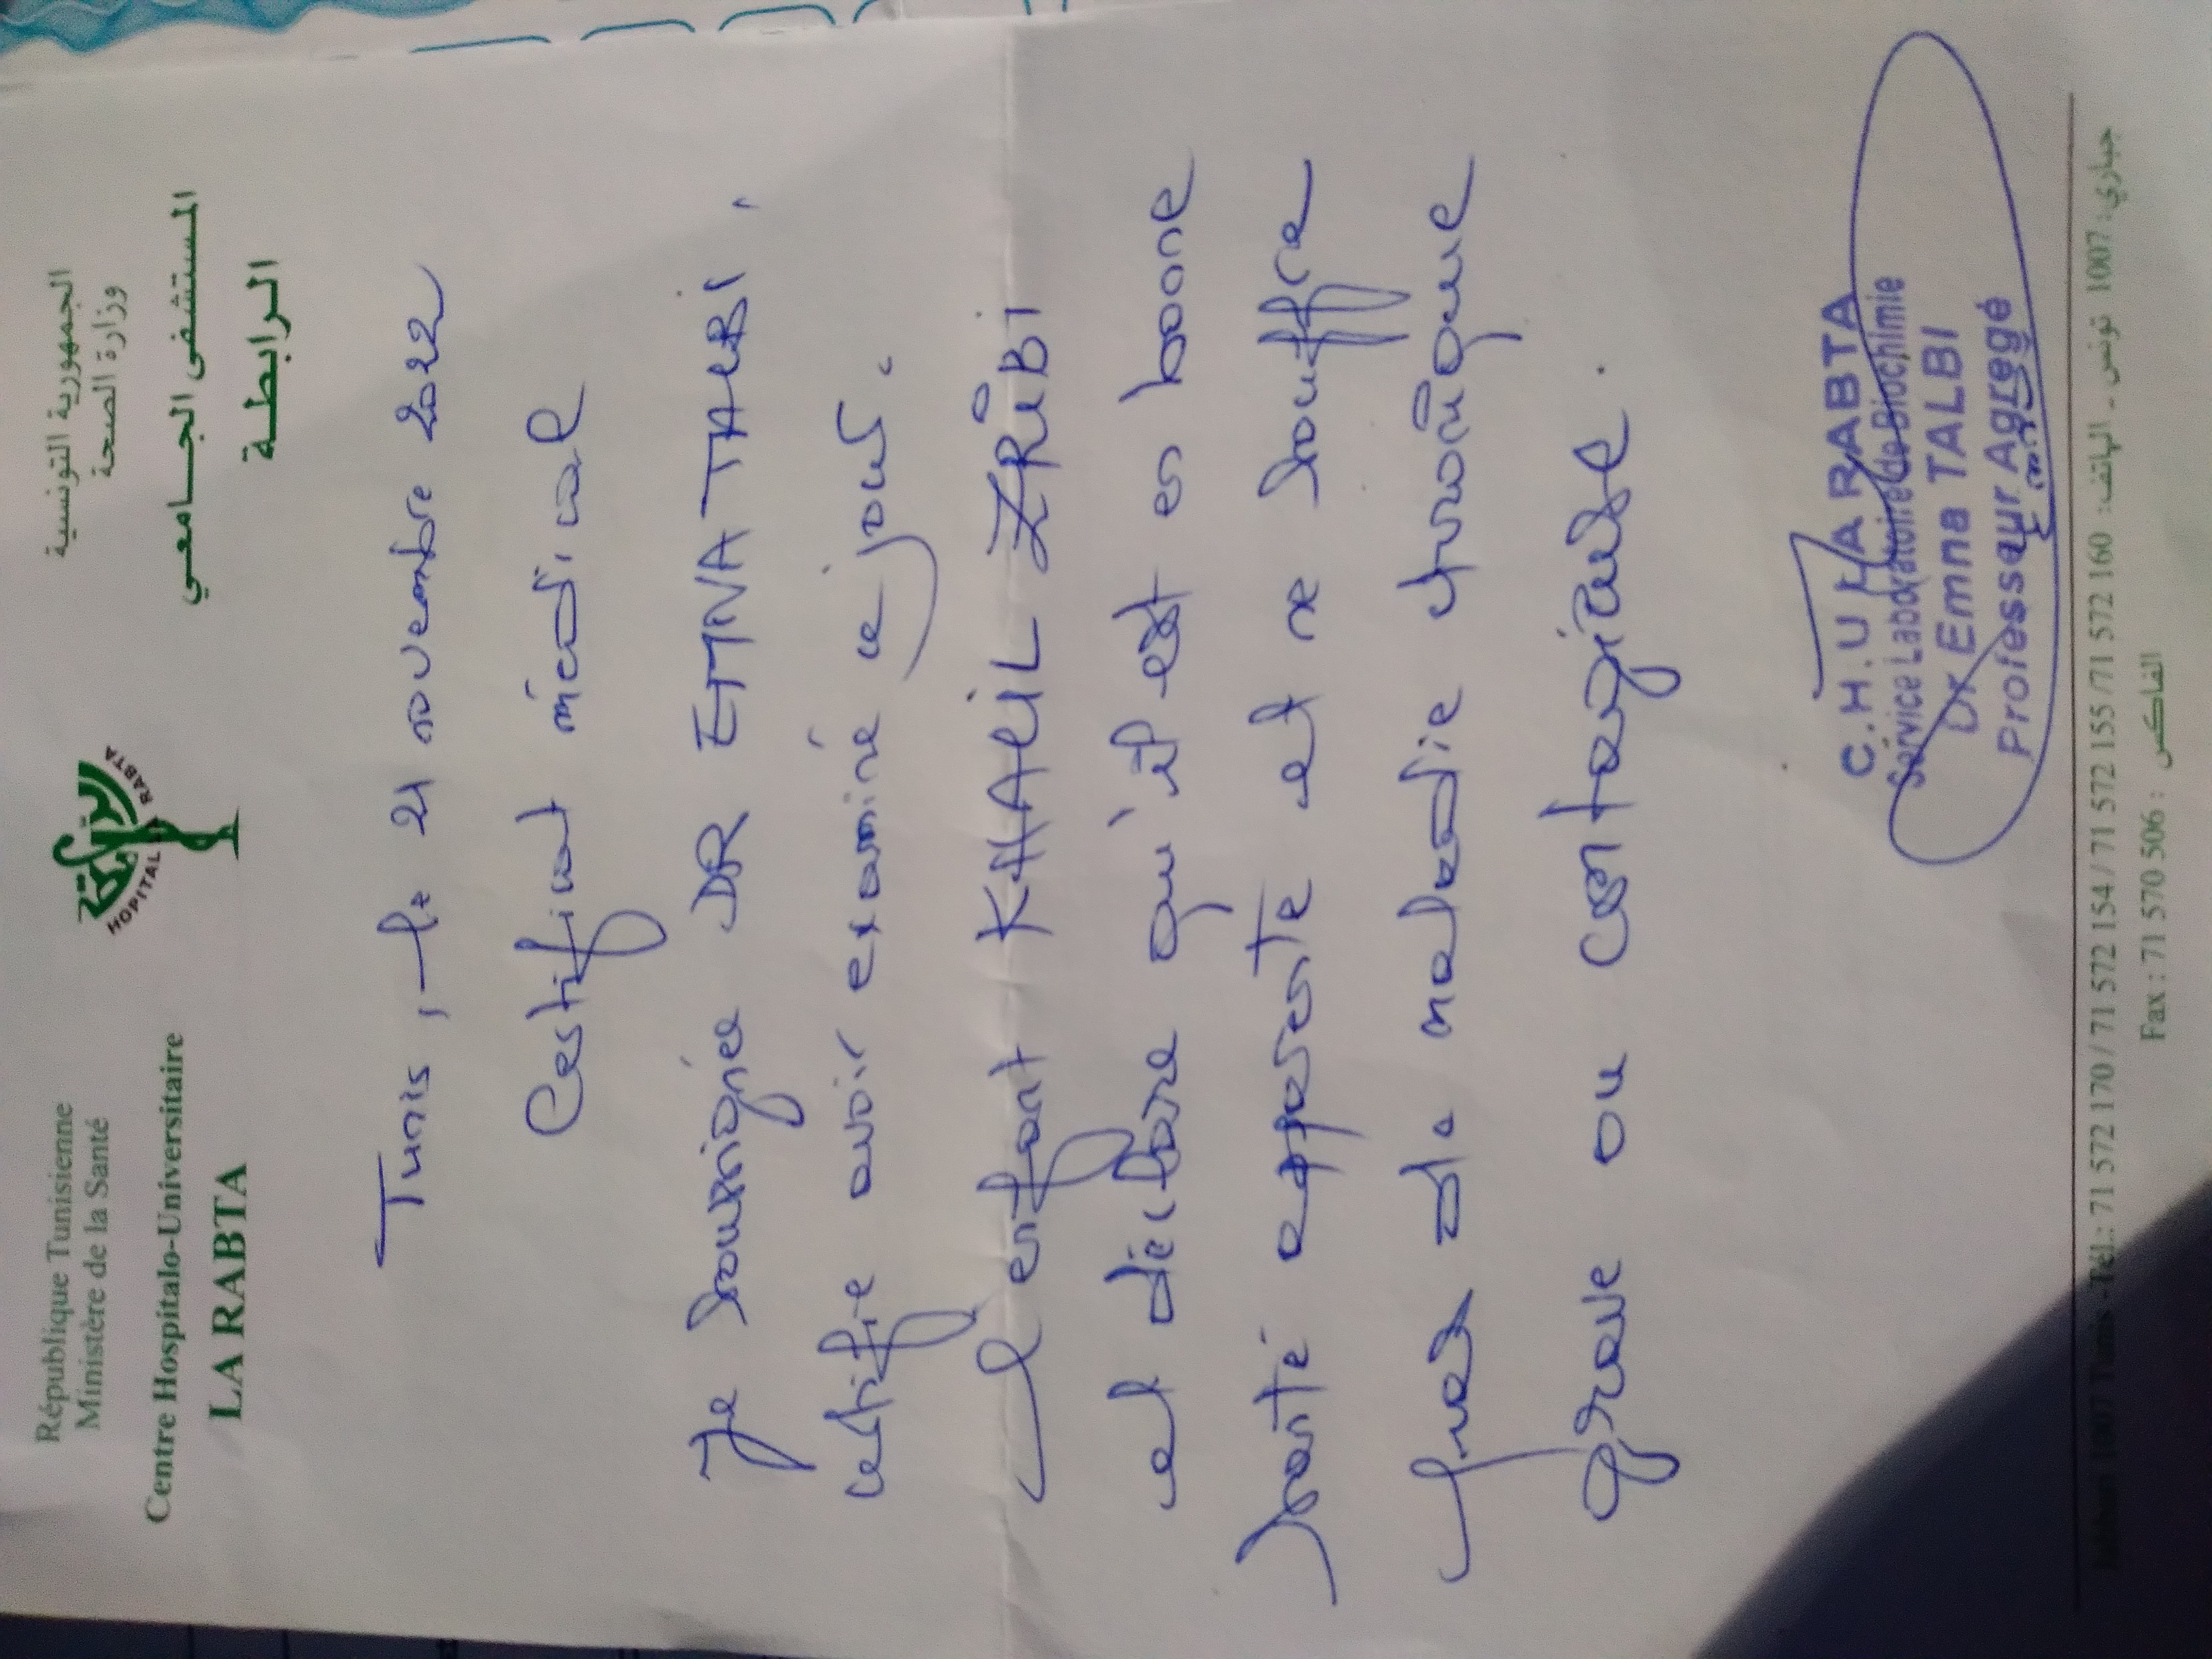 République Tunisienne
Ministère de la Santé
Centre Hospitalo-Universitaire
LA RABTA
HOPITAL LA RABTA
الرابطة
الجمهورية التونسية
وزارة الصحة
المستشفى الجـامعـي
الـرابطـة
Tunis, le 21 novembre 2022
Certificat médical
Je soussignée DR EMNA TALBI,
certifie avoir examiné ce jour
l'enfant KHALIL ZRIBI
et déclare qu'il est en bone
santé apparente et ne souffre
pas de maladie chronique
grave ou contagieuse.
C.H.U LA RABTA
Service Laboratoire de Biochimie
Dr Emna TALBI
Professeur Agregé
Jabbari 1007 Tunis - Tél.: 71 572 170 / 71 572 154 / 71 572 155 / 71 572 160 جباري: 1007 تونس - الهاتف:
Fax : 71 570 506 : الفاكس